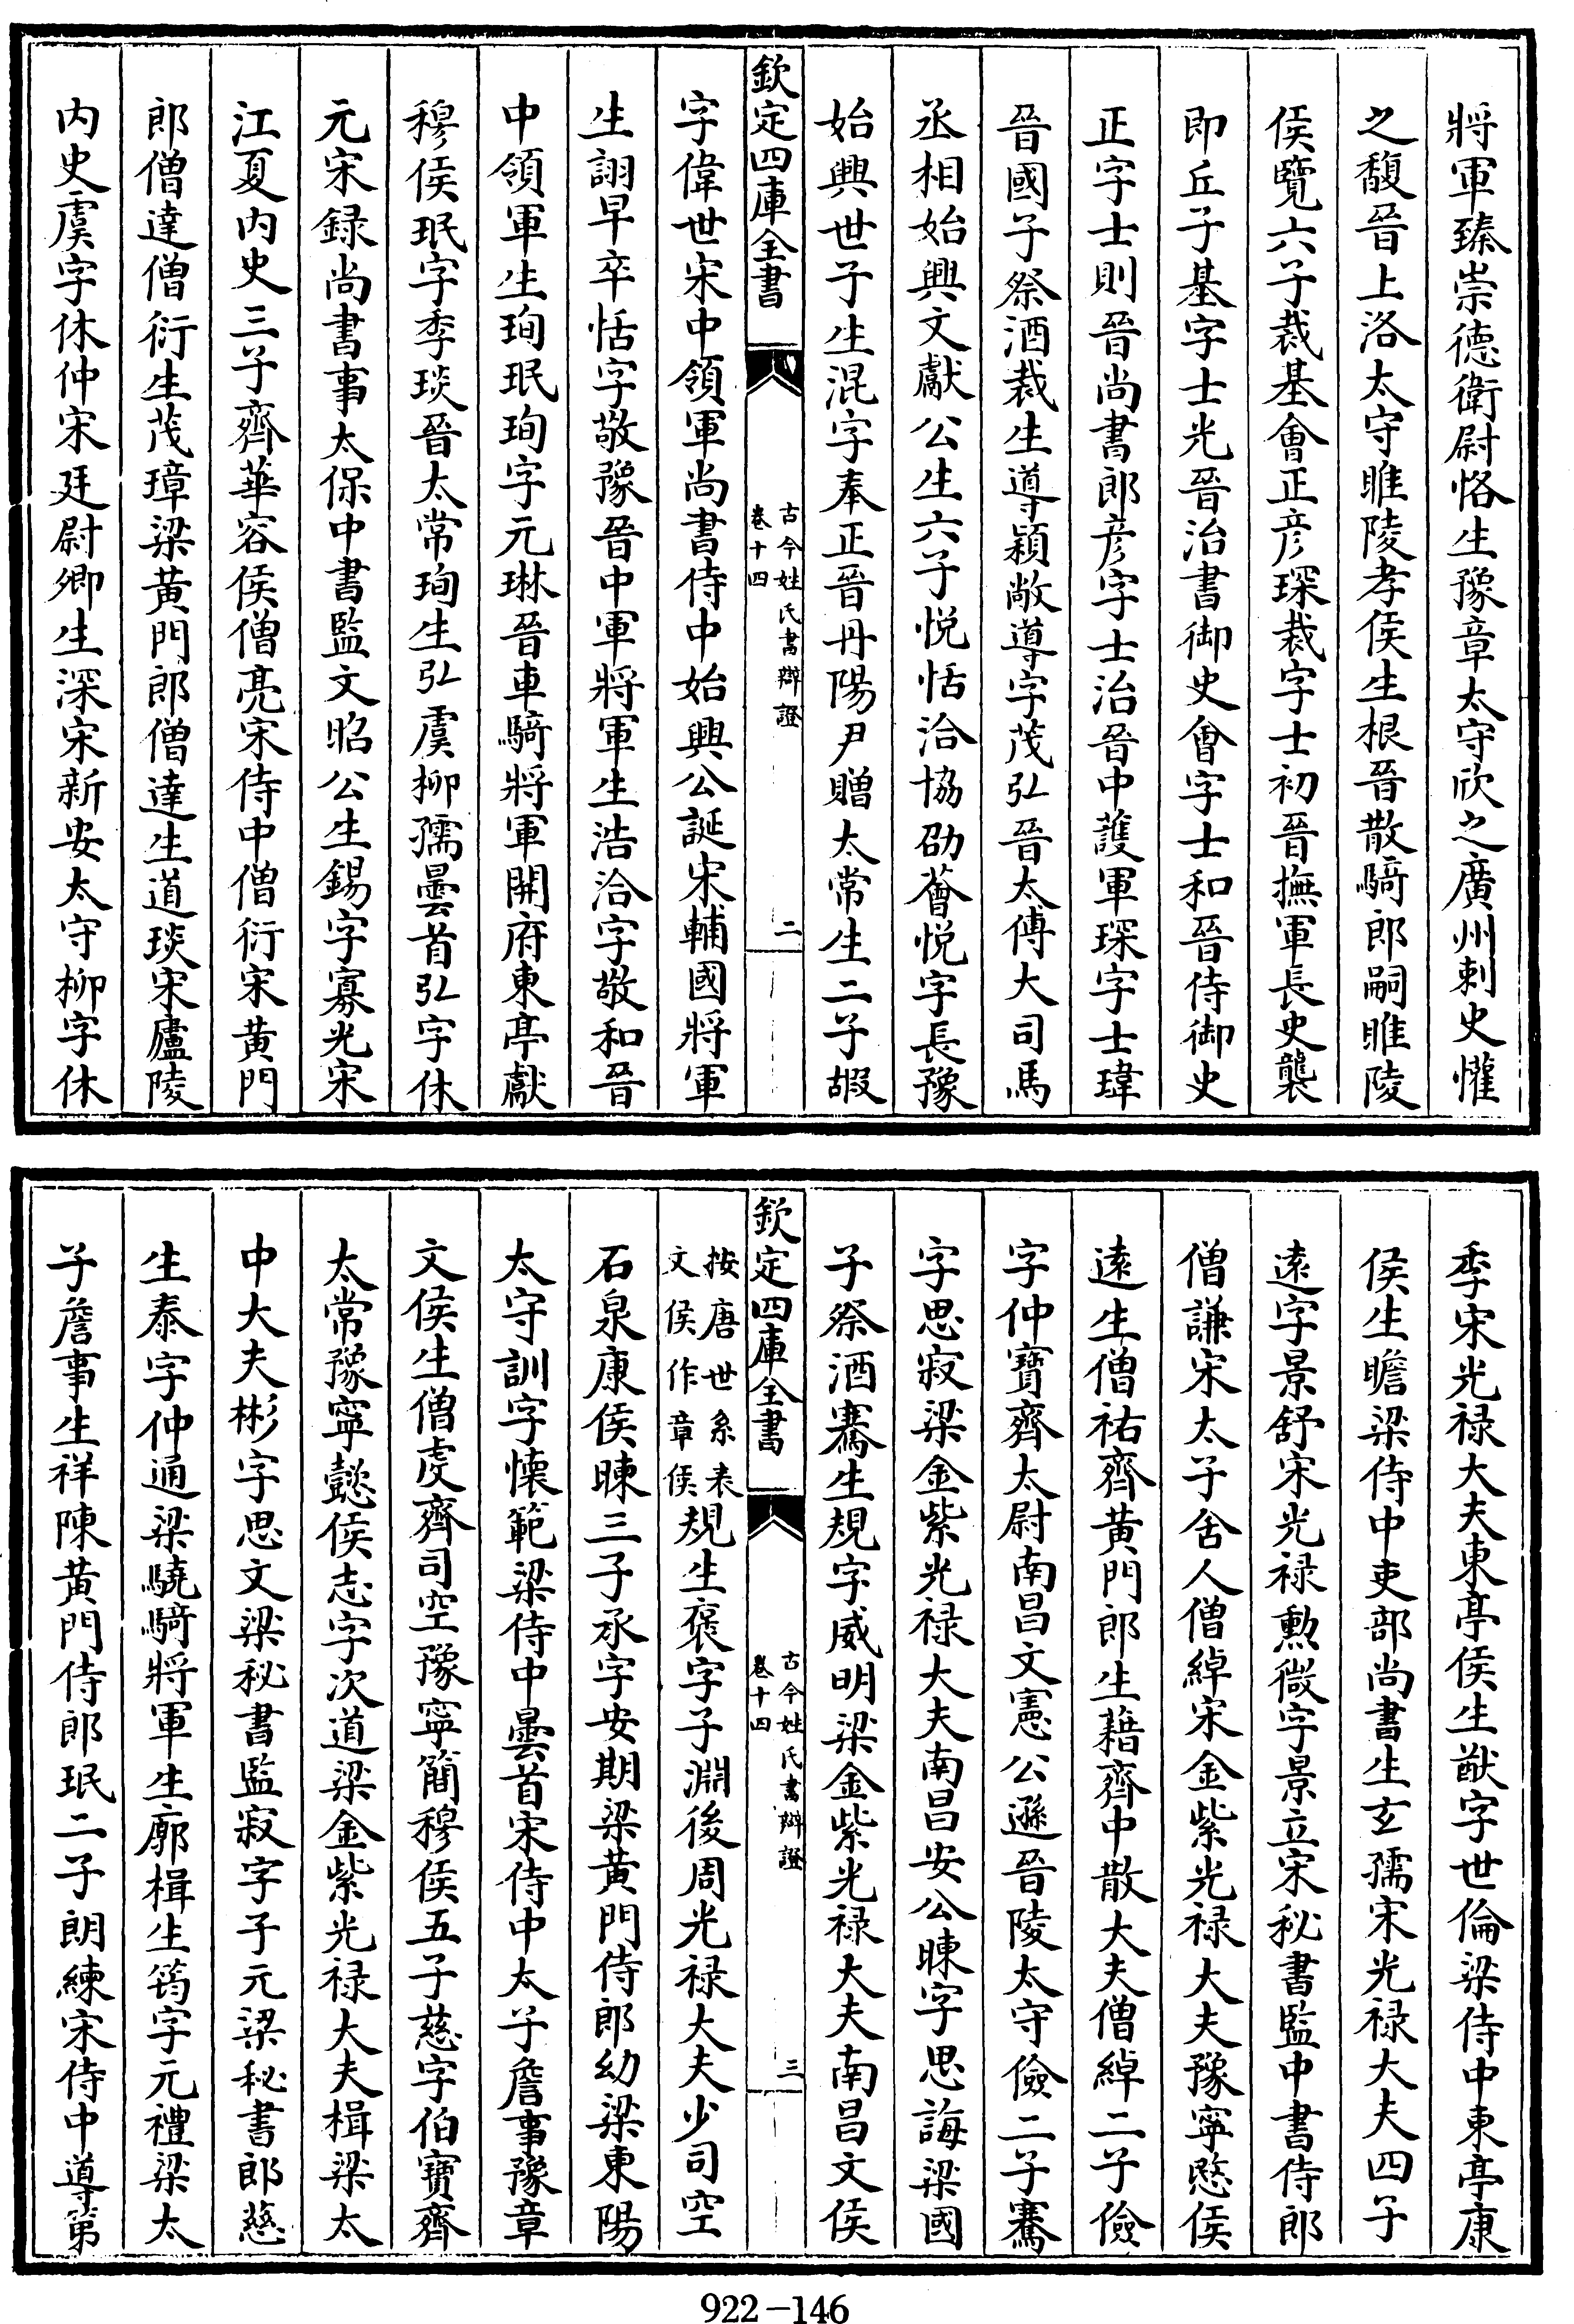 將軍臻崇德衛尉恪生豫章太守欣之廣州刺史懽
之馥晉上洛太守睢陵孝侯生根晉散騎郎嗣睢陵
侯覽六子裁基會正彦琛裁字士初晉撫軍長史襲
即丘子基字士光晉治書御史會字士和晉侍御史
正字士則晉尚書郎彦字士治晉中護軍琛字士瑋
晉國子祭酒裁生導穎敞導字茂弘晉太傅大司馬
丞相始興文獻公生六子悦恬洽協劭薈悦字長豫
始興世子生混字奉正晉丹陽尹贈太常生二子嘏
欽定四庫全書
古今姓氏書辯證
卷十四
二
字偉世宋中領軍尚書侍中始興公誕宋輔國將軍
生詡早卒恬字敬豫晉中軍將軍生浩洽字敬和晉
中領軍生珣珉珣字元琳晉車騎將軍開府東亭獻
穆侯珉字季琰晉太常珣生弘虞柳孺曇首弘字休
元宋録尚書事太保中書監文昭公生錫字寡光宋
江夏内史三子齊華容侯僧亮宋侍中僧衍宋黄門
郎僧達僧衍生茂璋梁黄門郎僧達生道琰宋廬陵
内史虞字休仲宋廷尉卿生深宋新安太守柳字休
季宋光禄大夫東亭侯生猷字世倫梁侍中東亭康
侯生瞻梁侍中吏部尚書生玄孺宋光禄大夫四子
遠字景舒宋光禄勲微字景立宋秘書監中書侍郎
僧謙宋太子舍人僧綽宋金紫光禄大夫豫寧愍侯
遠生僧祐齊黄門郎生藉齊中散大夫僧綽二子儉
字仲寶齊太尉南昌文憲公遜晉陵太守儉二子騫
字思寂梁金紫光禄大夫南昌安公暕字思誨梁國
子祭酒騫生規字威明梁金紫光禄大夫南昌文侯
欽定四庫全書
古今姓氏書辯證
卷十四
三
按唐世系表
文侯作章侯
規生褒字子淵後周光禄大夫少司空
石泉康侯暕三子承字安期梁黄門侍郎幼梁東陽
太守訓字懷範梁侍中曇首宋侍中太子詹事豫章
文侯生僧虔齊司空豫寧簡穆侯五子慈字伯寶齊
太常豫寧懿侯志字次道梁金紫光禄大夫楫梁太
中大夫彬字思文梁秘書監寂字子元梁秘書郎慈
生泰字仲通梁驍騎將軍生廓楫生筠字元禮梁太
子詹事生祥陳黄門侍郎珉二子朗練宋侍中導第
922-146